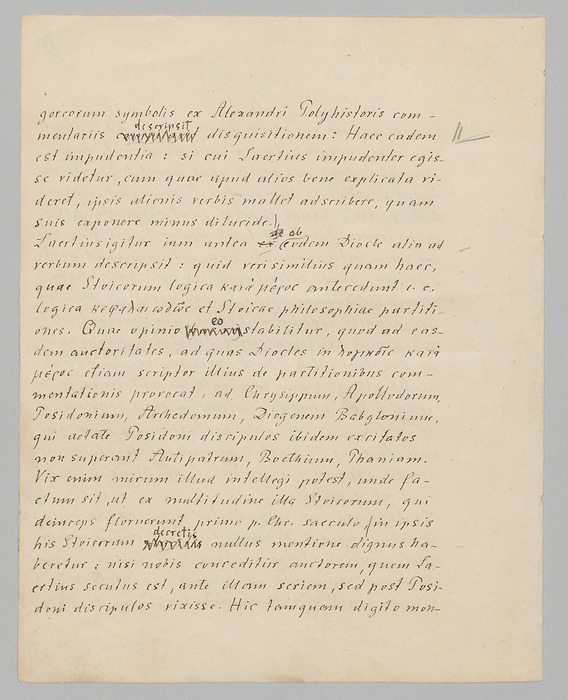 goreorum symbolis ex Alexandri Polyhistoris com-
mentariis descripsit disquisitionem: Haec eadem
est impudentia: si cui Laertius impudenter egis-
se videtur, cum quae apud alios bene explicata vi-
deret, ipsis alienis verbis mallet adscribere, quam
suis exponere minus dilucide.
Laertius igitur iam antea ab eodem Diocle alia ad
verbum descripsit: quid veri similius quam haec,
quae Stoicorum logica κατὰ μέρος antecedunt i. e.
logica κεφαλαιωδῶς et Stoicae philosophiae partiti-
ones. Quae opinio eo stabilitur, quod ad eas-
dem auctoritates, ad quas Diocles in λογικοῖς κατὰ
μέρος etiam scriptor illius de partitionibus com-
mentationis provocat, ad Chrysippum, Apollodorum,
Posidonium, Archedemum, Diogenem Babylonium,
qui aetate Posidoni discipulos ibidem excitatos
non superant Antipatrum, Boethum, Phaniam.
Vix enim mirum illud intellegi potest, unde fa-
ctum sit, ut ex multitudine illa Stoicorum, qui
deinceps floruerunt primo p. Chr. saeculo in ipsis
his Stoicorum decretis nullus mentione dignus ha-
beretur: nisi nobis conceditur auctorem, quem La-
ertius secutus est, ante illam seriem, sed post Posi-
doni discipulos vixisse. Hic tamquam digito mon-